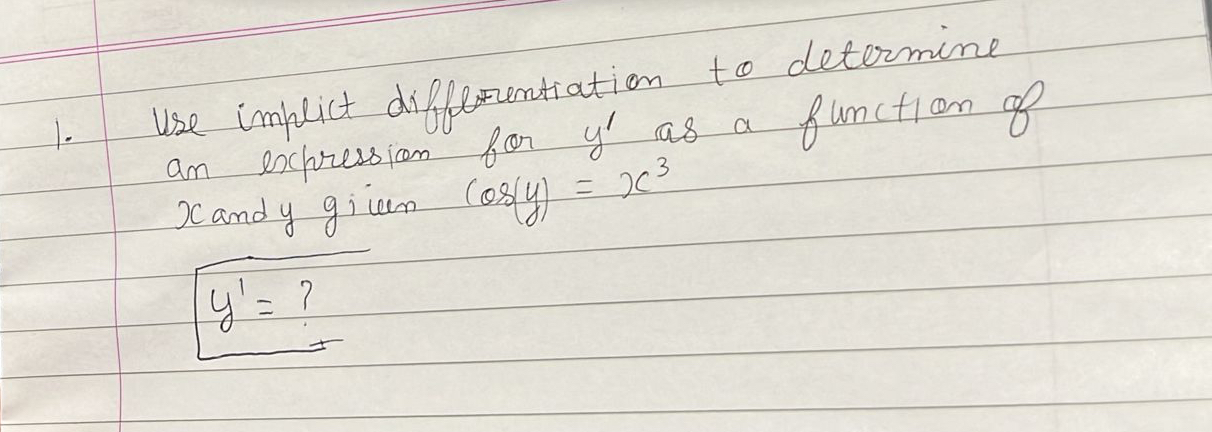 1. Use implict differentiation to determine
an expression for y' as a function of
x and y given Cos(y) = x³
y' = ?